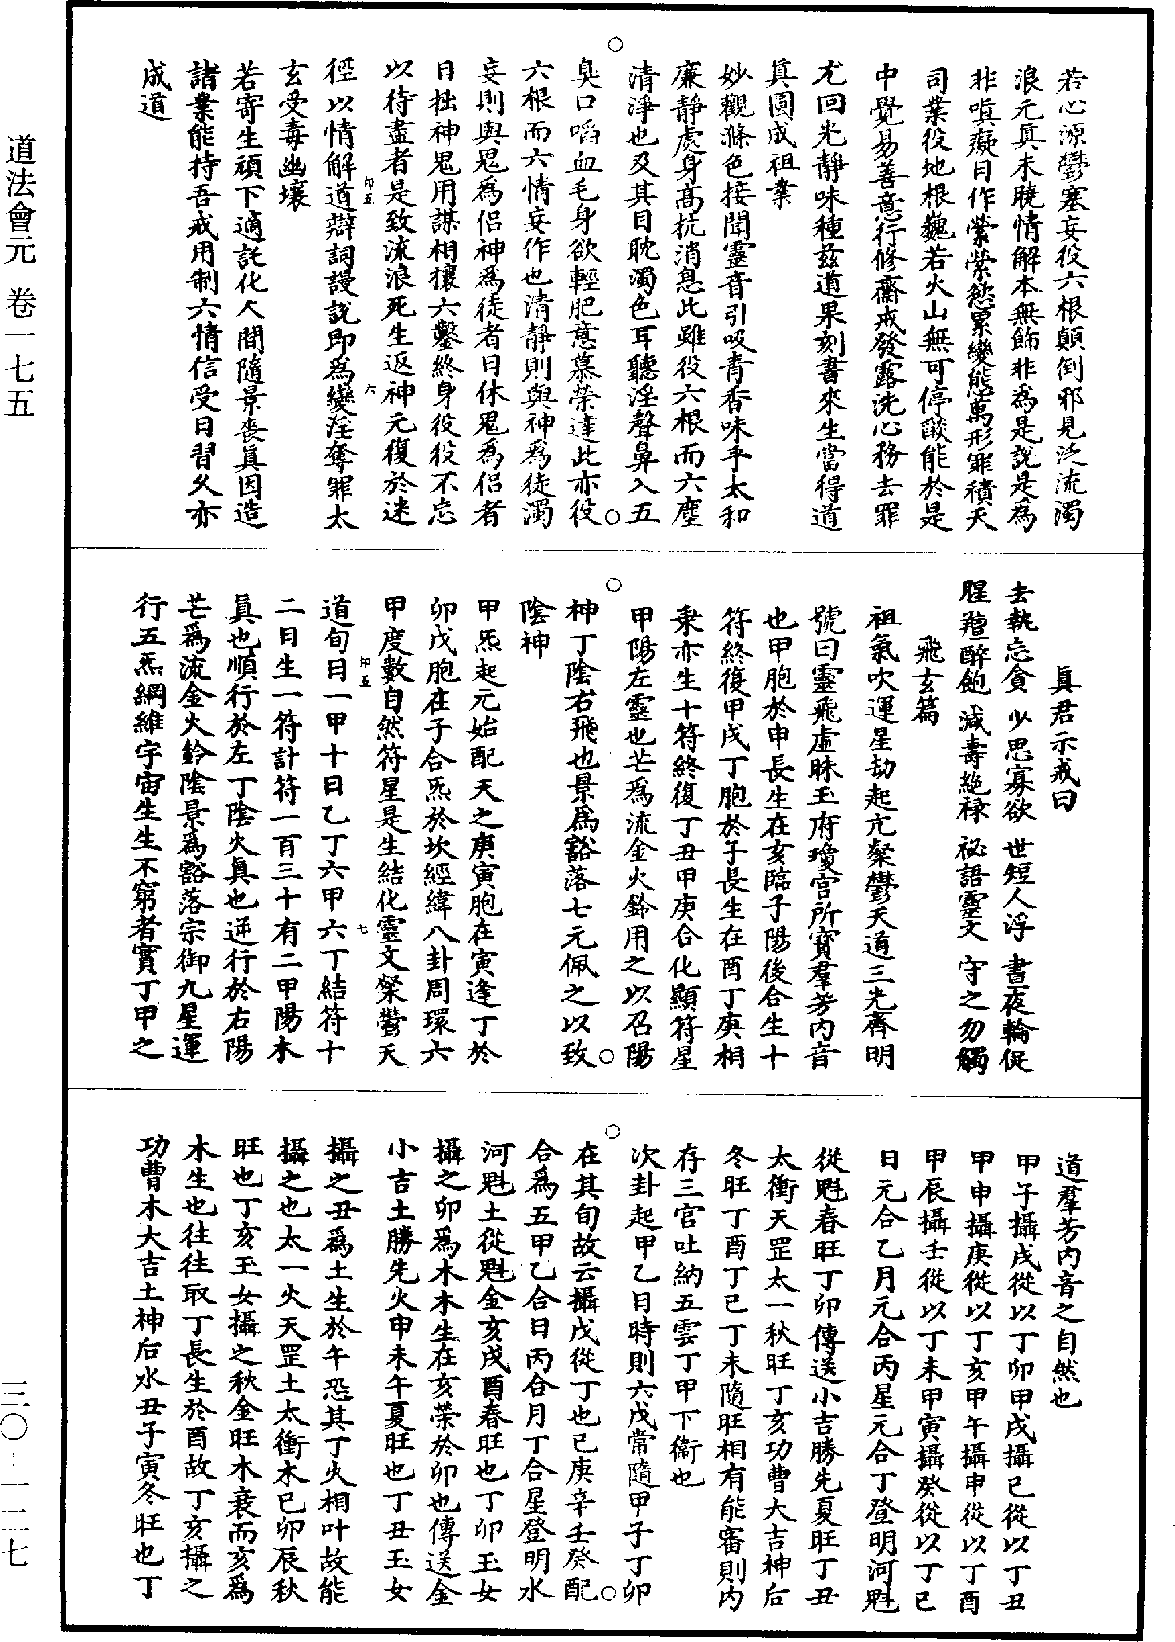 若心源鬱塞妄役六根顛倒邪見泛流濁
浪元真未曉情解本無飾非為是說是為
非嗔癡日作縈縈愆累變態萬形罪積天
司業役地根巍若火山無可停談能於是
中覺易善意行修齋戒發露洗心務去罪
尤回光靜味種茲道果刻書來生當得道
真圓成祖業
妙觀滌色接聞靈音引吸青香味乎太和
廉靜處身高抗消息此雖役六根而六塵
清淨也及其目耽濁色耳聽淫聲鼻入五
臭口啗血毛身欲輕肥意慕榮達此亦役
六根而六情妄作也清靜則與神為徒濁
妄則與鬼為侶神為徒者日休鬼為侶者
日拙神鬼用謀相攘六鑿終身役役不忘
以待盡者是致流浪死生返神元復於迷
徑以情解道辯詞謾說即為變淫奪罪太
玄受毒幽壤
若寄生頑下適託化人間隨景喪真因造
諸業能持吾戒用制六情信受日習久亦
成道
真君示戒曰
去執忘貪 少思寡欲 世短人浮 晝夜輪促
腥羶醉飽 減壽絕祿 祕語靈文 守之勿觸
飛玄篇
祖氣吹運星劫起亢粲鬱天道三光齊明
號曰靈飛虛昧玉府瓊宮所寶羣芳內音
也甲胞於申長生在亥臨子陽後合生十
符終復甲戌丁胞於子長生在酉丁庚相
乘亦生十符終復丁丑甲庚合化顯符星
甲陽左靈也芒為流金火鈴用之以召陽
神丁陰右飛也景為豁落七元佩之以致
陰神
甲炁起元始配天之庚寅胞在寅逢丁於
卯戊胞在子合炁於坎經緯八卦周環六
甲度數自然符星是生結化靈文粲鬱天
道旬日一甲十日乙丁六甲六丁結符十
二日生一符計符一百三十有二甲陽木
真也順行於左丁陰火真也逆行於右陽
芒為流金火鈴陰景為豁落宗御九星運
行五炁綱維宇宙生生不窮者實丁甲之
道羣芳內音之自然也
甲子攝戌從以丁卯甲戌攝己從以丁丑
甲申攝庚從以丁亥甲午攝申從以丁酉
甲辰攝壬從以丁未甲寅攝癸從以丁巳
日元合乙月元合丙星元合丁登明河魁
從魁春旺丁卯傳送小吉勝先夏旺丁丑
太衝天罡太一秋旺丁亥功曹大吉神后
冬旺丁酉丁巳丁未隨旺相有能審則內
存三官吐納五雲丁甲下衛也
次卦起甲乙日時則六戊常隨甲子丁卯
在其旬故云攝戊從丁也己庚辛壬癸配
合為五甲乙合日丙合月丁合星登明水
河魁土從魁金亥戌酉春旺也丁卯玉女
攝之卯為木木生在亥榮於卯也傳送金
小吉土勝先火申未午夏旺也丁丑玉女
攝之丑為土生於午恐其丁火相叶故能
攝之也太一火天罡土太衝木巳卯辰秋
旺也丁亥玉女攝之秋金旺木衰而亥為
木生也往往取丁長生於酉故丁亥攝之
功曹木大吉土神后水丑子寅冬旺也丁
道法會元 卷一七五
三〇—一二七